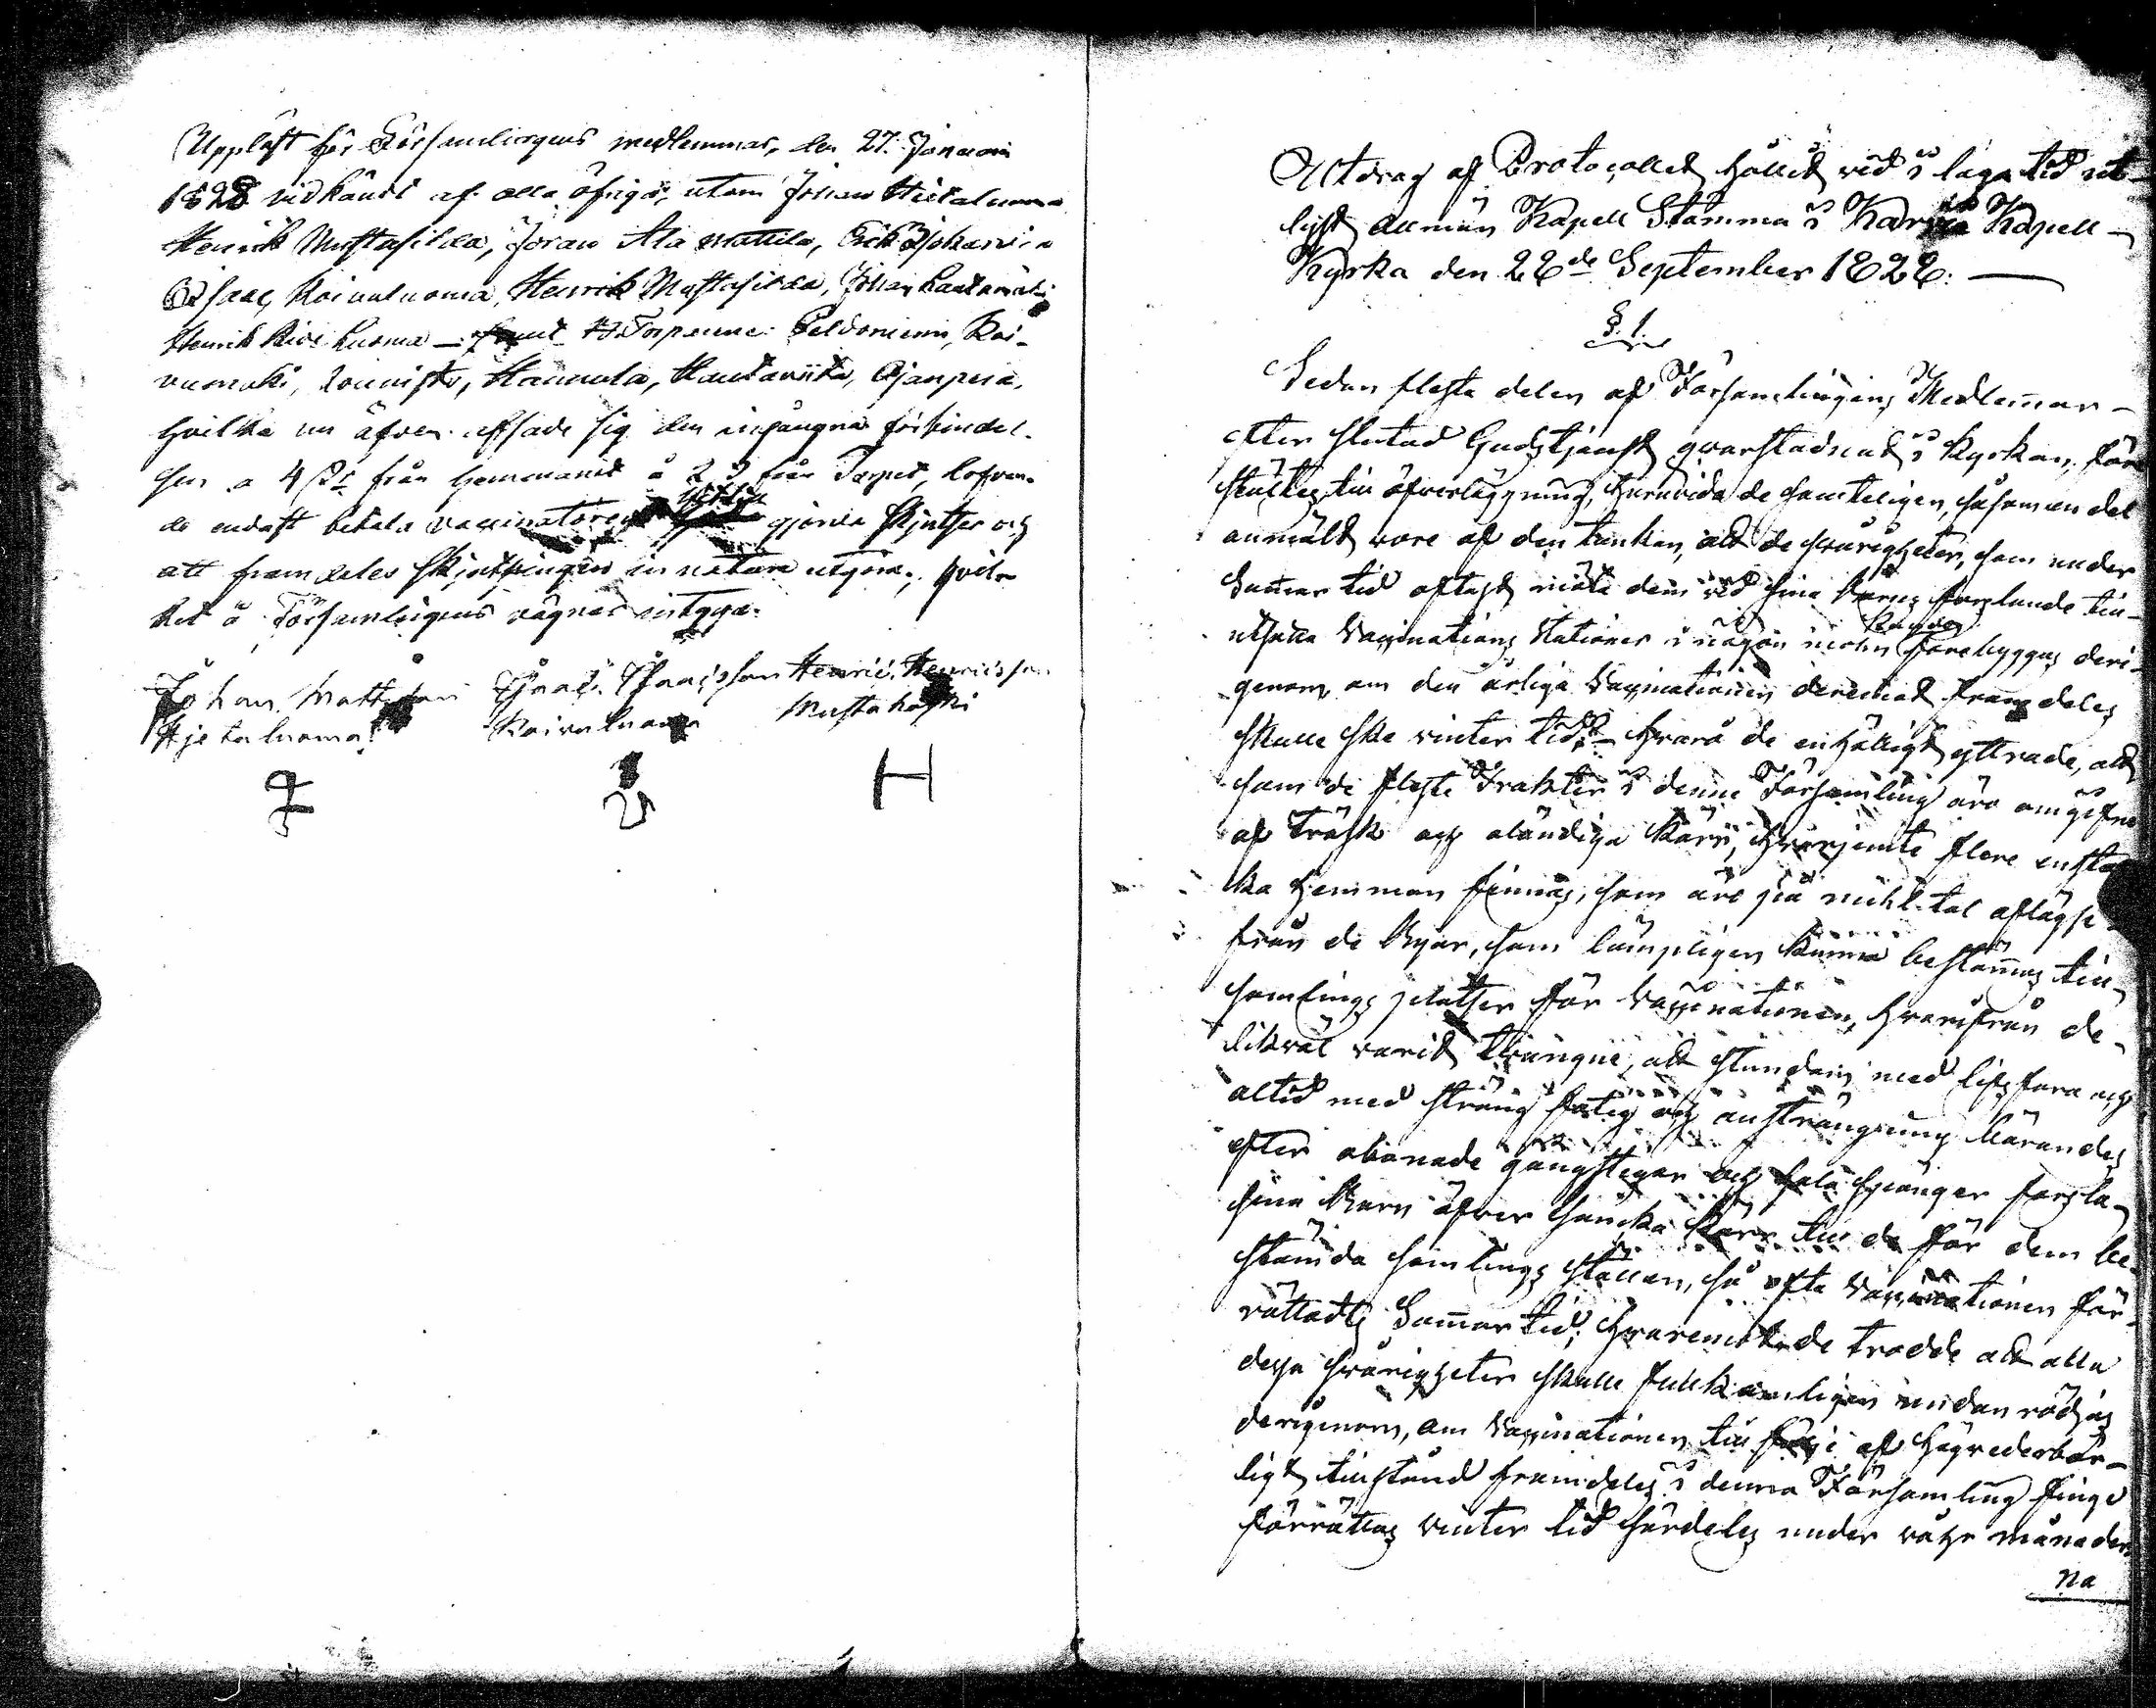 Uppläst för Församlingens medlemmar, den 27. Januarii
1828 vidkändt af alla öfriga, utom Johan Hietaluoma
Henrik Mustasilda, Jöran Ala Mattila, Erik
Isaac Koivuluoma, Henrik Mustasilda, Johan Lautamäki
Henrik Kivi luoma — samt
vumäki, Hannula, Hautaviita,
hvilka nu äfven afsade sig den ingångna förbindel-
sen a 4 från hemmanet å 2 från Torpet, lofvan-
de endast betala vaccinatoren gjorda skjutser och
att framdeles skjutsningen in natura utgöra; hvil-
ket å Församlingens vägnar intygas.
Johan Mattsson Isaac Isaacsson Henric Henricsson
Hjetaluoma Koivuluoma Mustakoski
H
Utdrag af Protocollet hållet vid i laga tid ut-
lyst allmän Kapell Stämma i Karvia Kapell-
Kyrka den 28de September 1828. —
§. 1.
Sedan flesta delen af Församlingens Medlemmar-
efter slutad Gudstjenst qvarstadnat i Kyrkan, före
stältes till öfverläggning, huruvida de samteligen, såsom en del
anmält vore af den tankan, att de svårigheter, som under
Sommar tid oftast möta dem vid sina barns forslande till-
utsatta Vaccinations Stationer i någon mohn kunde förebyggas deri-
genom, om den årliga Vaccinationen derstädes framdeles
skulle ske vinter tid; - hvarå de enhälligt yttrade, att
som de fleste Trakter i denne Församling äro omgifne
af Träsk och oländiga Kärr, hvarjemte flere ensta-
ka hemman finnas, som äro på mihl-tal aflägse
från de Byar, som lämpligen kunna bestämmas till-
samlings platser för Vaccinationen, hvarifrån de-
likväl varit tvungne, att stundom med lifsfara och
altid med sträng fatig och ansträngning bärandes
efter obanade gångstigar och hala spänger forsla-
sina Barn öfver Kärr till de för dem be-
stämda samlings ställen, så ofta Vaccinationen för-
rättats Sommar tid; hvaremot de trodde att alla
dessa svårigheter skulle fullkomligen undanrödjas
derigenom, om Vaccinationen till följe af Högvederbör-
ligt tillstånd framdeles i denna Församling finge
förrättas vinter tid särdeles under vår månader
na